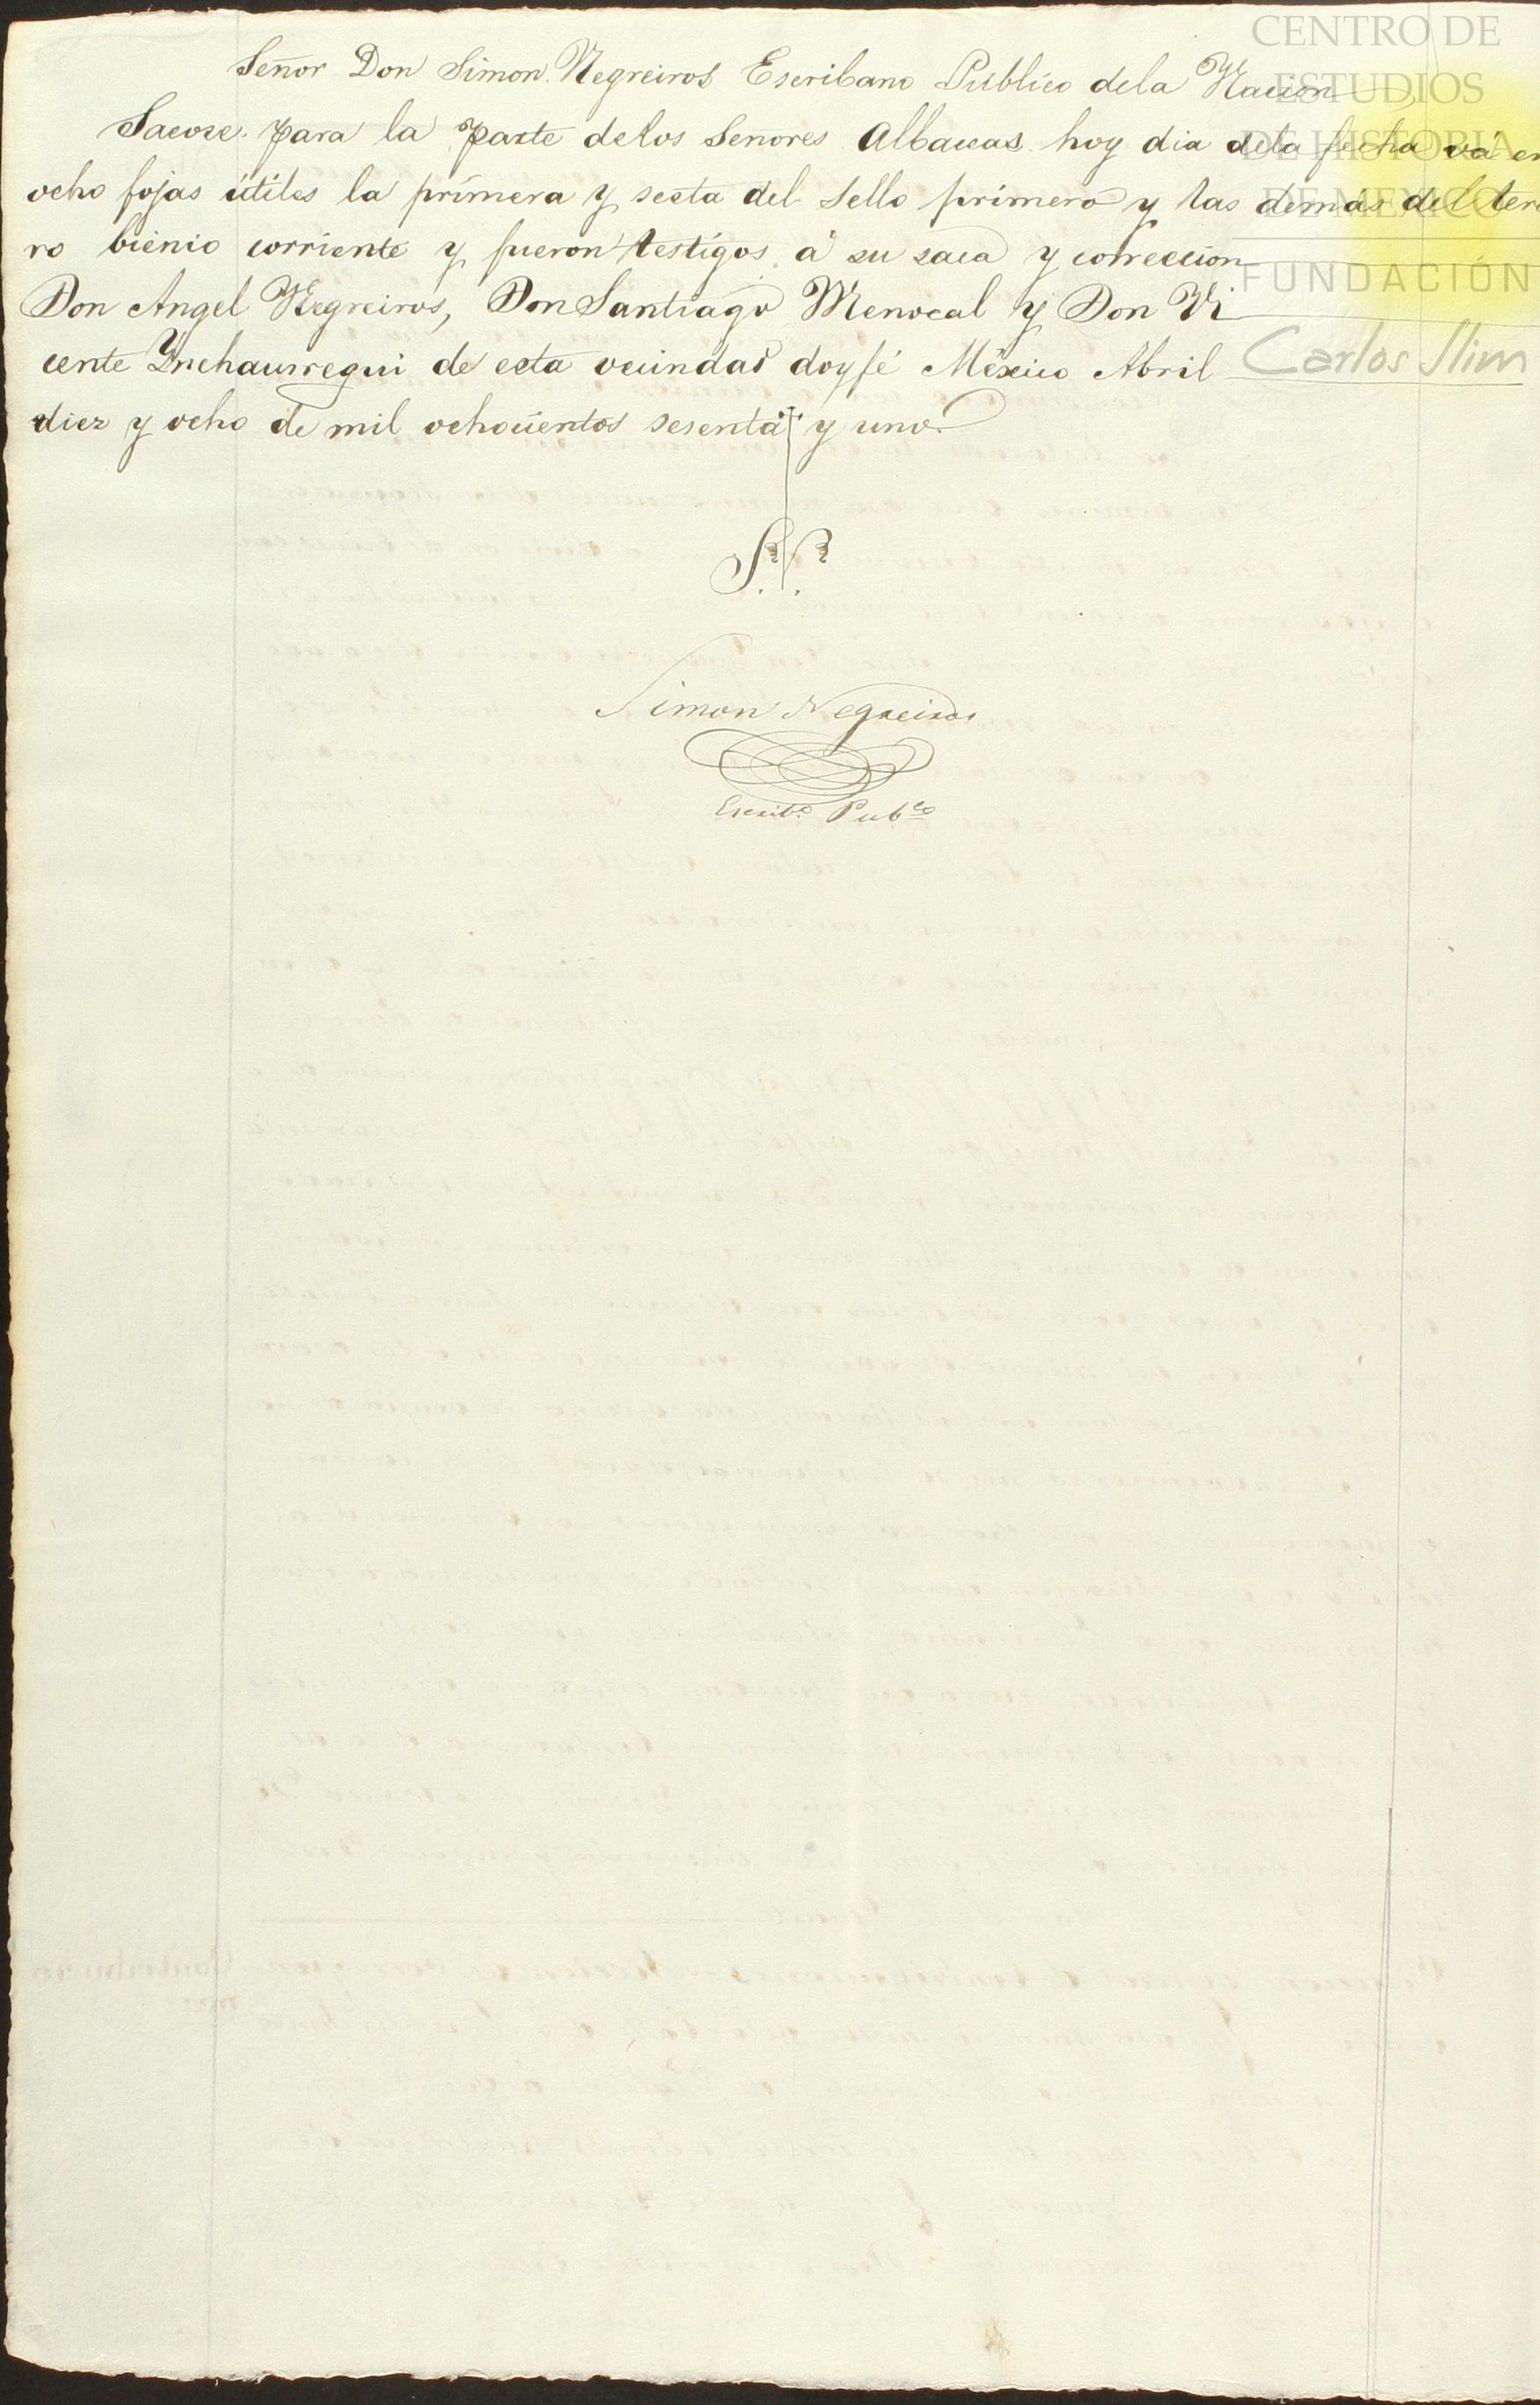 Señor Don Simon Negreiros Escribano Publico dela Nacion
Sacose para la parte delos Señores Albaceas hoy dia dela fecha vá en
ocho fojas útiles la primera y secta del sello primero y las demás del terce
ro bienio corriente y fueron testigos á su saca y correccion
Don Angel Negreiros, Don Santiago Menocal y Don Vi
cente Ynchaurregui de esta vecindad doy fé México Abril
diez y ocho de mil ochocientos sesenta y uno.
Simon Negreiros
Escribº. Pubco
CENTRO DE
ESTUDIOS
DE HISTORIA
DE MEXICO
FUNDACIÓN
Carlos Slim